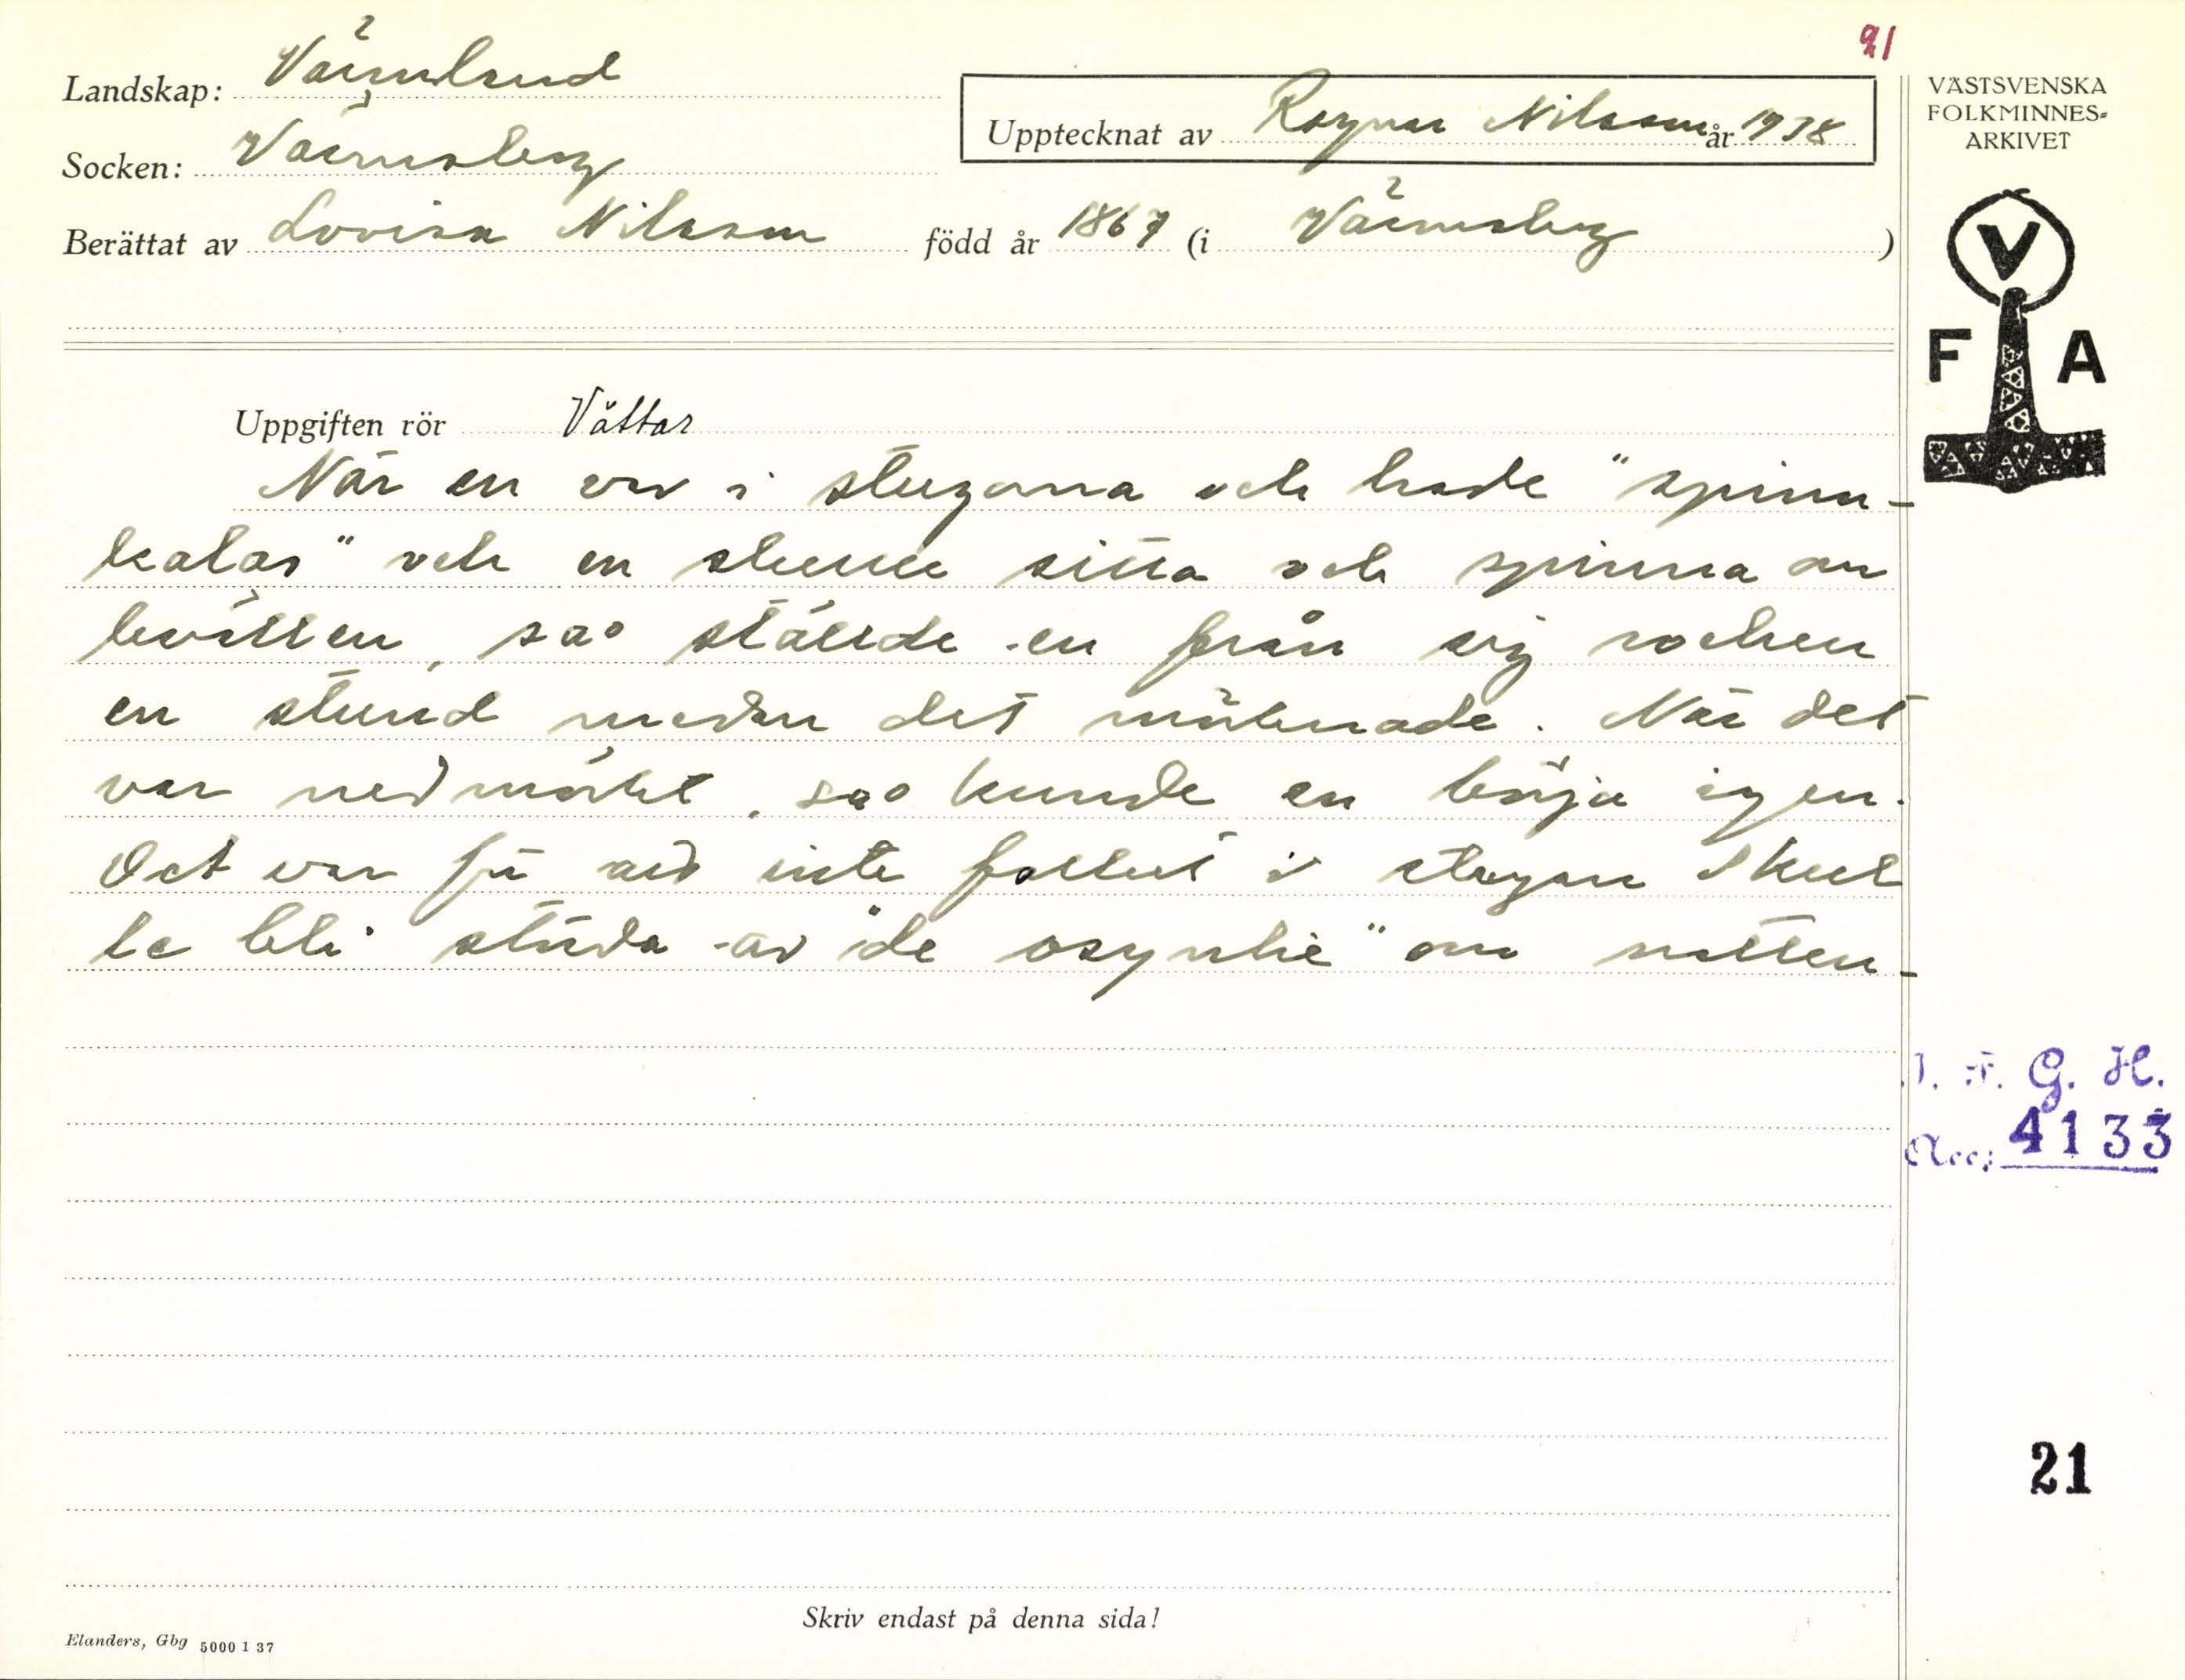 21
Landskap: Värmland
Upptecknat av Ragnar Nilsson år 1938
VÄSTSVENSKA
FOLKMINNES-
ARKIVET
Socken: Värmskog
Berättat av Lovisa Nilsson född år 1867 (i Värmskog)
V
F A
Uppgiften rör Vättar
När en var i stugorna och hade "spinn-
kalas" och en skulle sitta och spinna om
kvällen, sao ställde en från sig rocken
en stund medan det mörknade. När det
var nedmörkt, sao kunde en börja igen.
Det var för att inte folket i stugan skul
le bli störda av "de osynlie" om natten-
D. F. G. H.
Acc: 4133
21
Skriv endast på denna sida!
Elanders, Gbg 5000 1 37